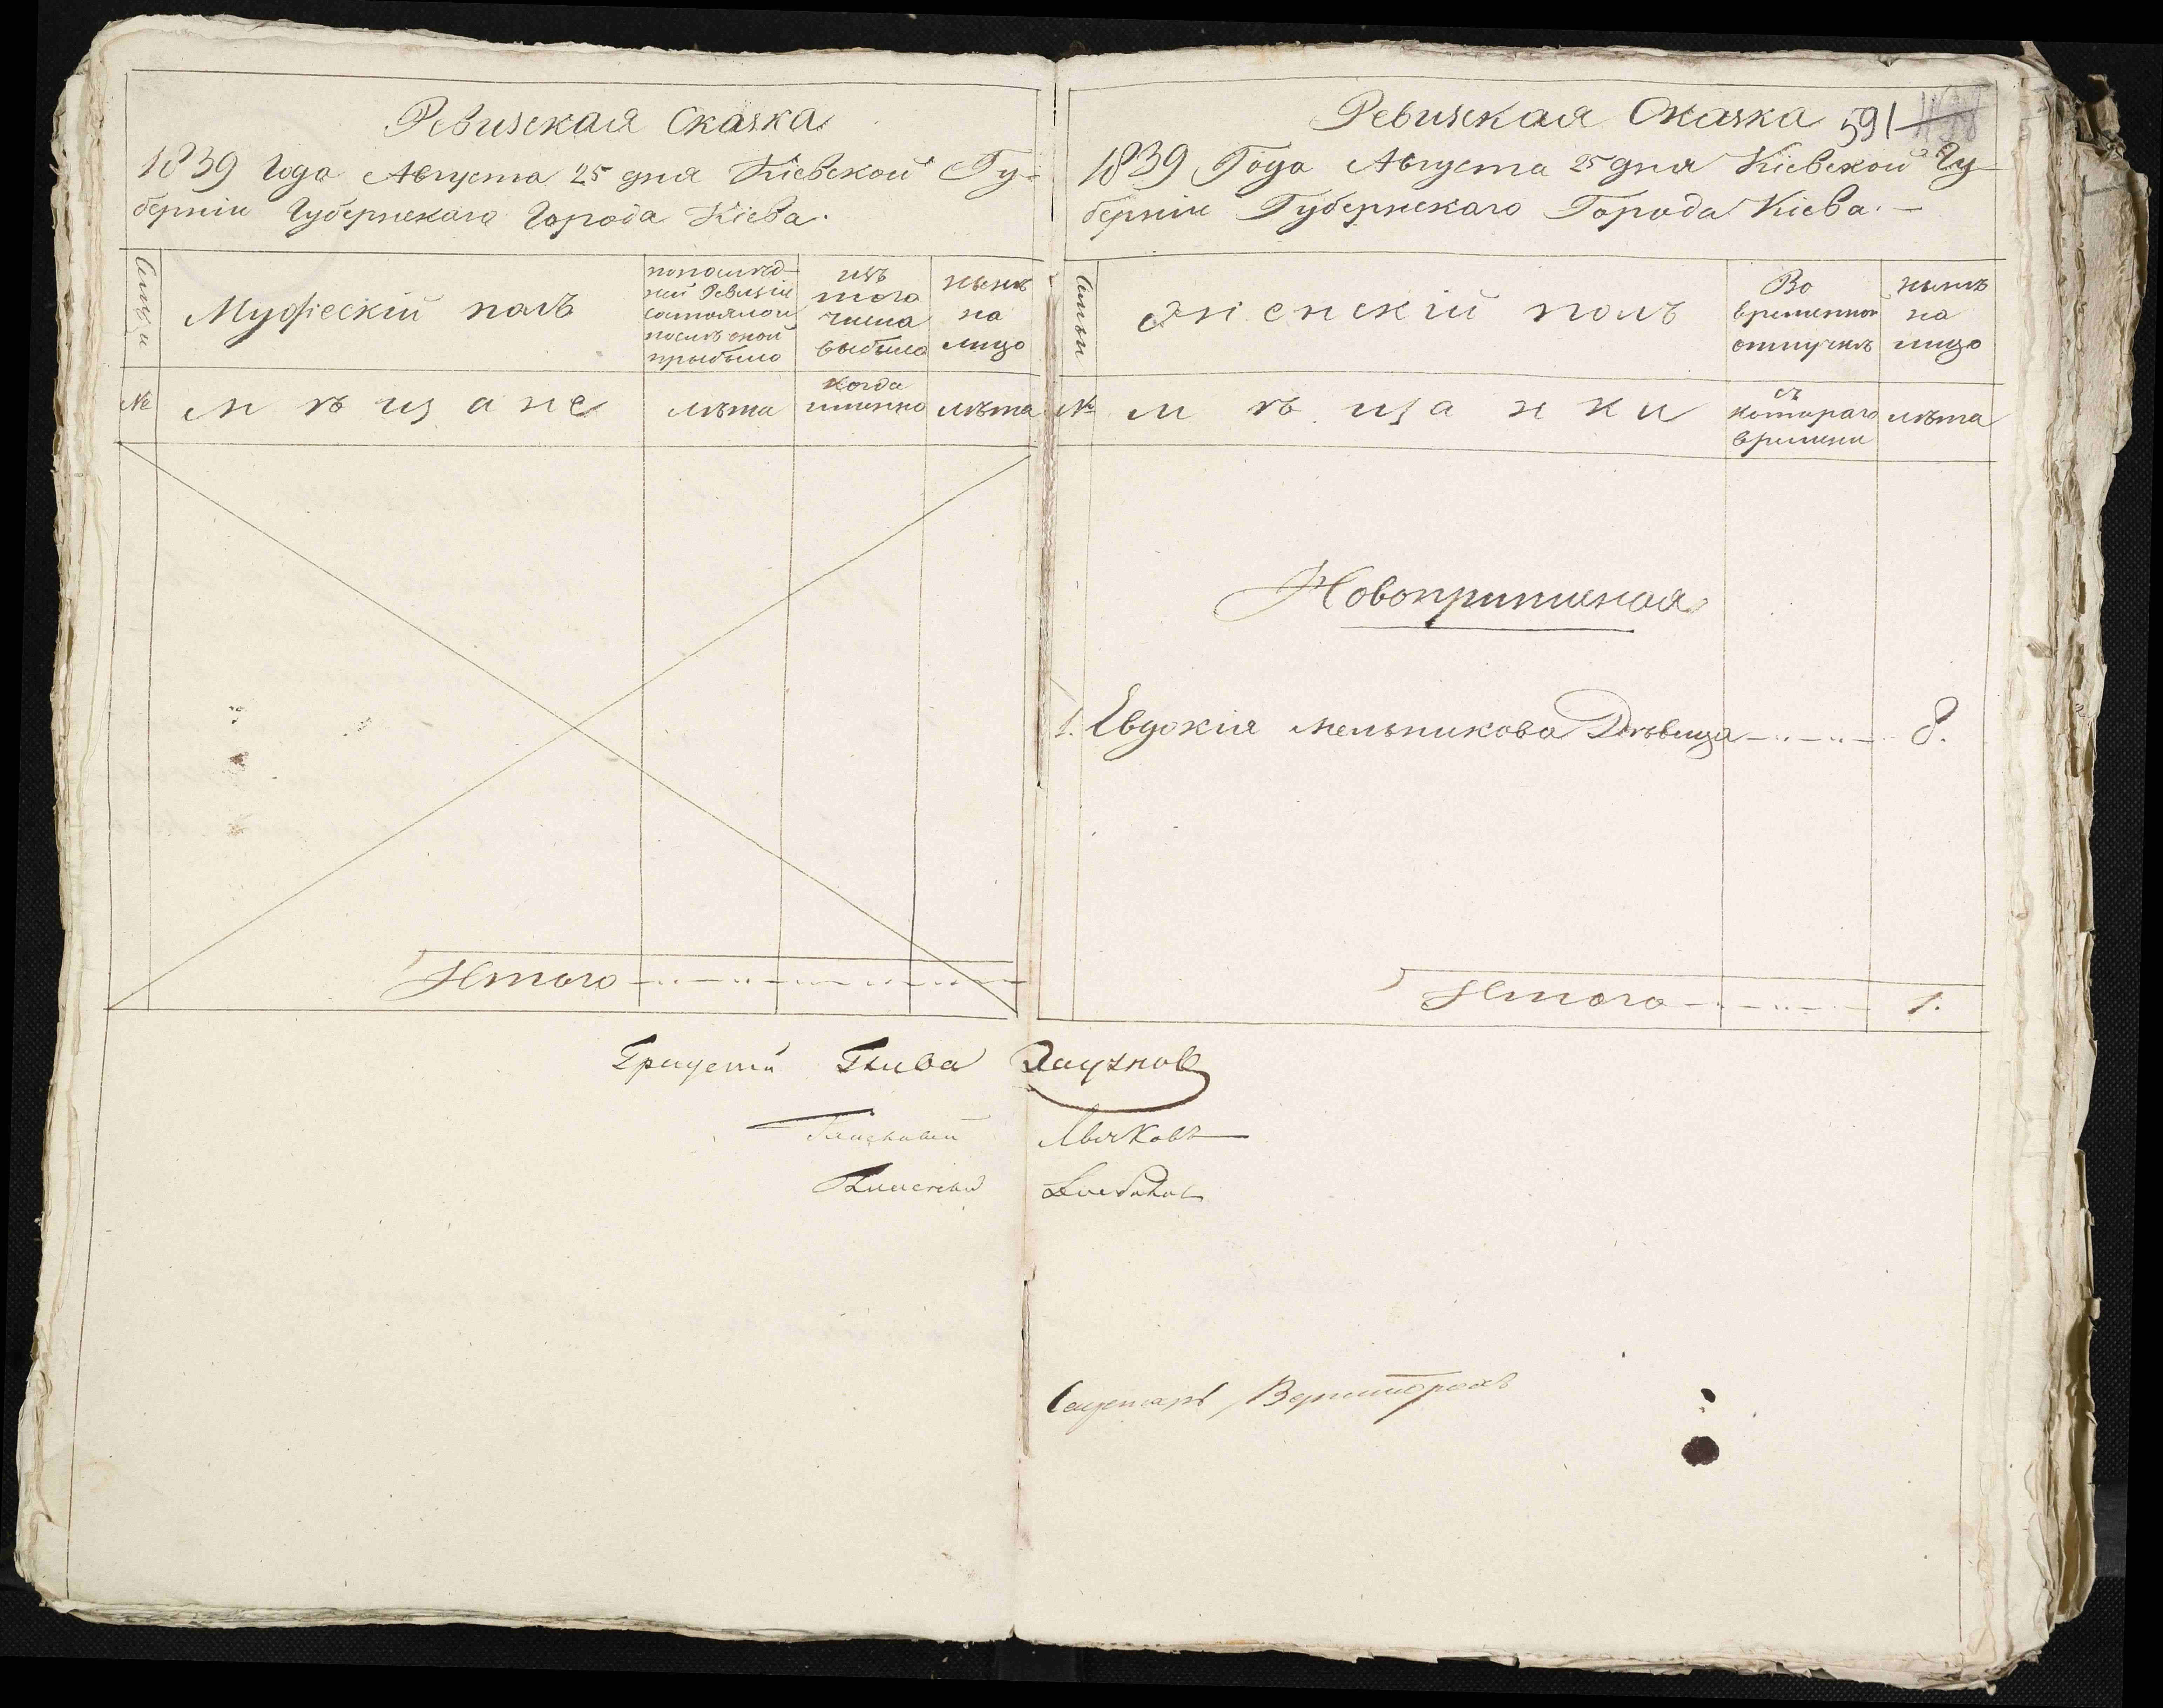 Ревизская Сказка
1839 Года Августа 25 дня Кіевской Гу-
берніи Губернскаго Города Кіева.
Семьи
Мужескій полъ
по послѣд-
ней Ревизіи
состояло и
послѣ оной
прибыло
изъ
того
числа
выбыло
нынѣ
на
лицо
№
мѣщане
лѣта
когда
именно
лѣта
Итого
Ревизская Сказка 591
1839 Года Августа 25 дня Кіевской Гу-
берніи Губернскаго Города Кіева. —
Семьи
Женскій полъ
Во
временной
отлучкѣ
нынѣ
на
лицо
№
мѣщанки
съ
котораго
времени
лѣта
Новопринятая
1. Евдокія Мельникова Дѣвица 8.
Итого 1.
Градскій Глава
Гласный
Гласный